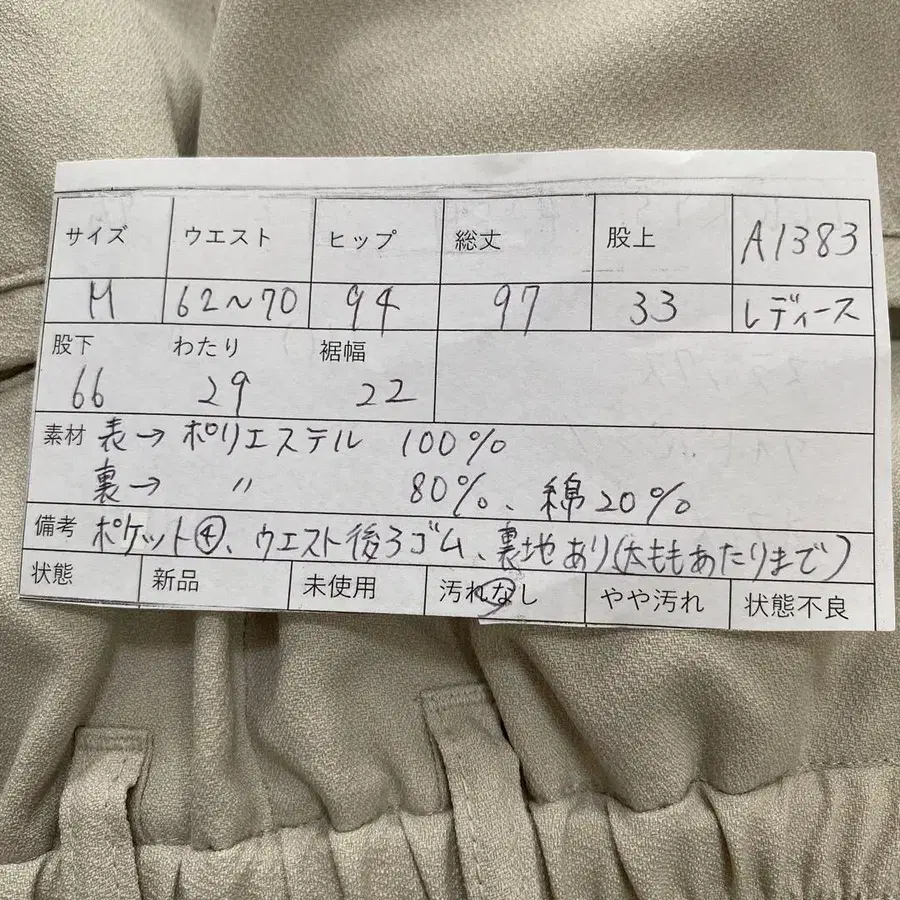 サイズ ウエスト ヒップ 総丈 股上 A1383
M 62〜70 94 97 33 レディース
股下 わたり 裾幅
66 29 22
素材 表→ ポリエステル 100%
裏→ 〃 80%、綿20%
備考 ポケット④、ウエスト後ろゴム、裏地あり(太ももあたりまで)
状態 新品 未使用 汚れなし やや汚れ 状態不良